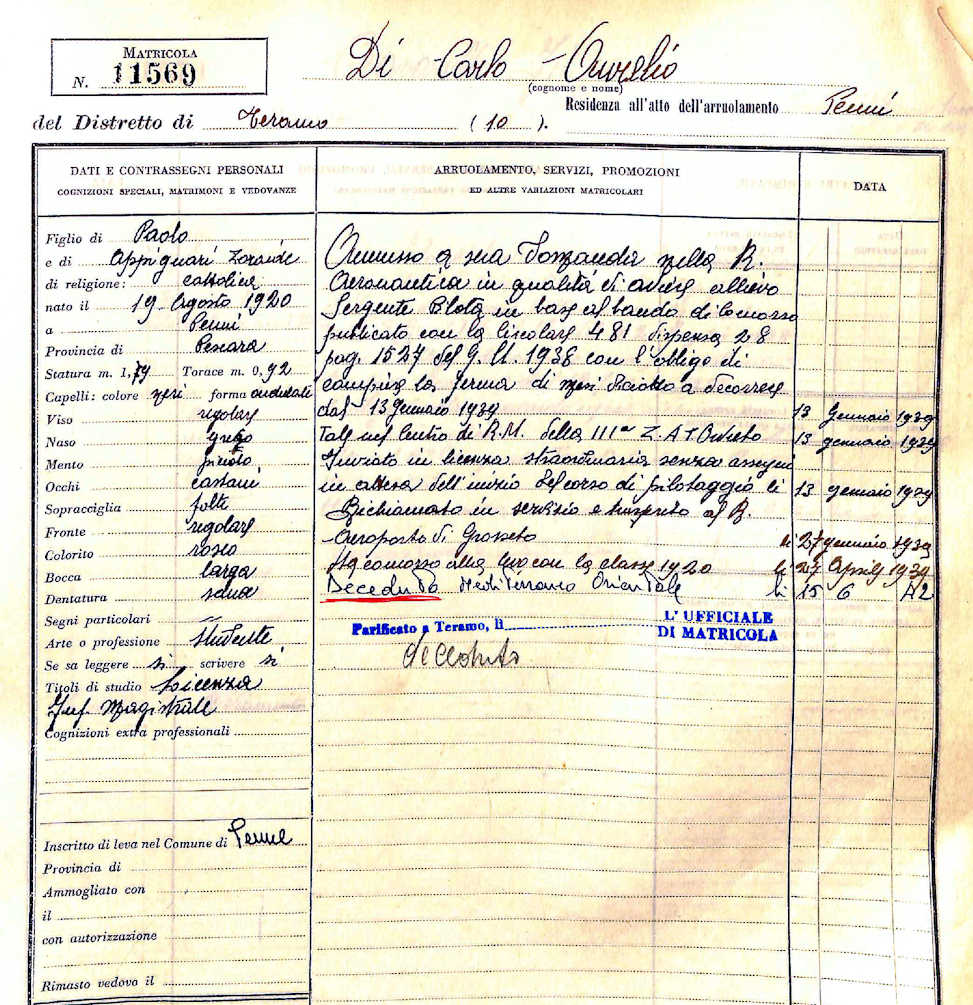 MATRICOLA
N. 11569
Di Carlo Aurelio
(cognome e nome)
Residenza all'atto dell'arruolamento Penni
del Distretto di Teramo (10).
DATI E CONTRASSEGNI PERSONALI
COGNIZIONI SPECIALI, MATRIMONI E VEDOVANZE
ARRUOLAMENTO, SERVIZI, PROMOZIONI
ED ALTRE VARIAZIONI MATRICOLARI
DATA
Figlio di Paolo
e di Appignani Zoraide
di religione: cattolica
nato il 19 Agosto 1920
a Penni
Provincia di Pescara
Statura m. 1,79 Torace m. 0,92
Capelli: colore neri forma ondulati
Viso regolare
Naso greco
Mento
Occhi castani
Sopracciglia folti
Fronte regolare
Colorito roseo
Bocca larga
Dentatura sana
Segni particolari
Arte o professione studente
Se sa leggere si scrivere si
Titoli di studio Licenza
Inf. Magistrale
Cognizioni extra professionali
Inscritto di leva nel Comune di Penne
Provincia di
Ammogliato con
il
con autorizzazione
Rimasto vedovo il
Ammesso a sua domanda nella R.
Aeronautica in qualità di aviere allievo
Sergente Pilota in base al bando di Concorso
publicato con la Circolare 481 dispensa 28
pag. 1527 del G. U. 1938 con l'obligo di
compiere la ferma di mesi diciotto a decorrere
dal 13 Gennaio 1939 13 Gennaio 1939
Tale nel Centro di R.M. della IIIa Z.A.T Orvieto 13 gennaio 1939
Inviato in licenza straordinaria senza assegni
in attesa dell'inizio del corso di pilotaggio li 13 gennaio 1939
Richiamato in servizio e al R.
Aeroporto di Grosseto li 27 gennaio 1939
Ha concorso alla leva con la classe 1920 li 27 Aprile 1939
Deceduto Mediterraneo Orientale li 15 6 42
Parificato a Teramo, lì
L'UFFICIALE
DI MATRICOLA
deceduto